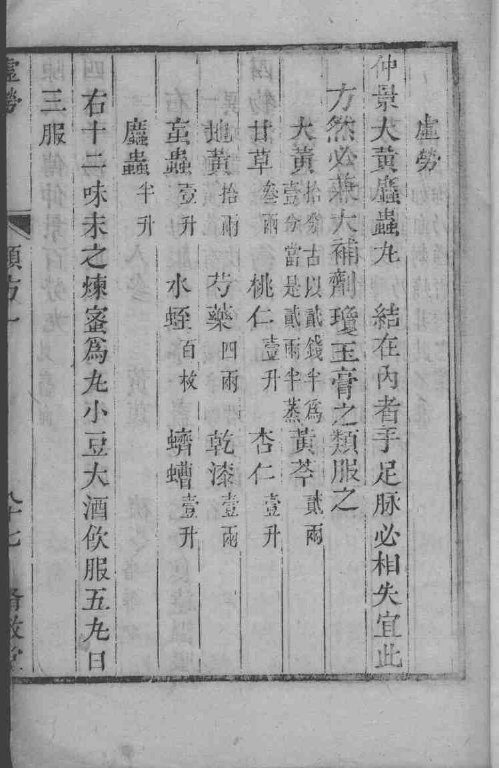 虛勞
仲景大黃䗪蟲丸　結在內者手足脉必相失宜此
方然必兼大補劑瓊玉膏之類服之
大黃拾分古以貳錢半爲壹分當是貳兩半蒸　黃芩貳兩
甘草叄兩　桃仁壹升　杏仁壹升
地黃拾兩　芍藥四兩　乾漆壹兩
䖟蟲壹升　水蛭百枚　蠐螬壹升
䗪蟲半升
右十二味末之煉蜜爲丸小豆大酒飲服五丸日
三服
虛勞　類方一　八十七